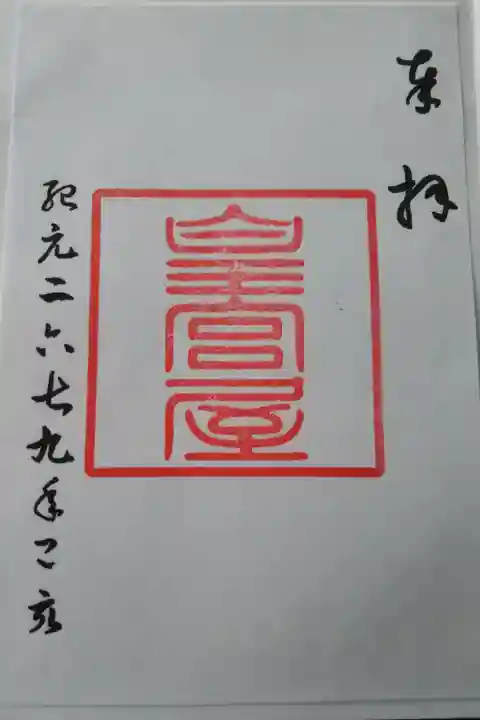 奉拝
皇宮屋
紀元二六七九年己亥